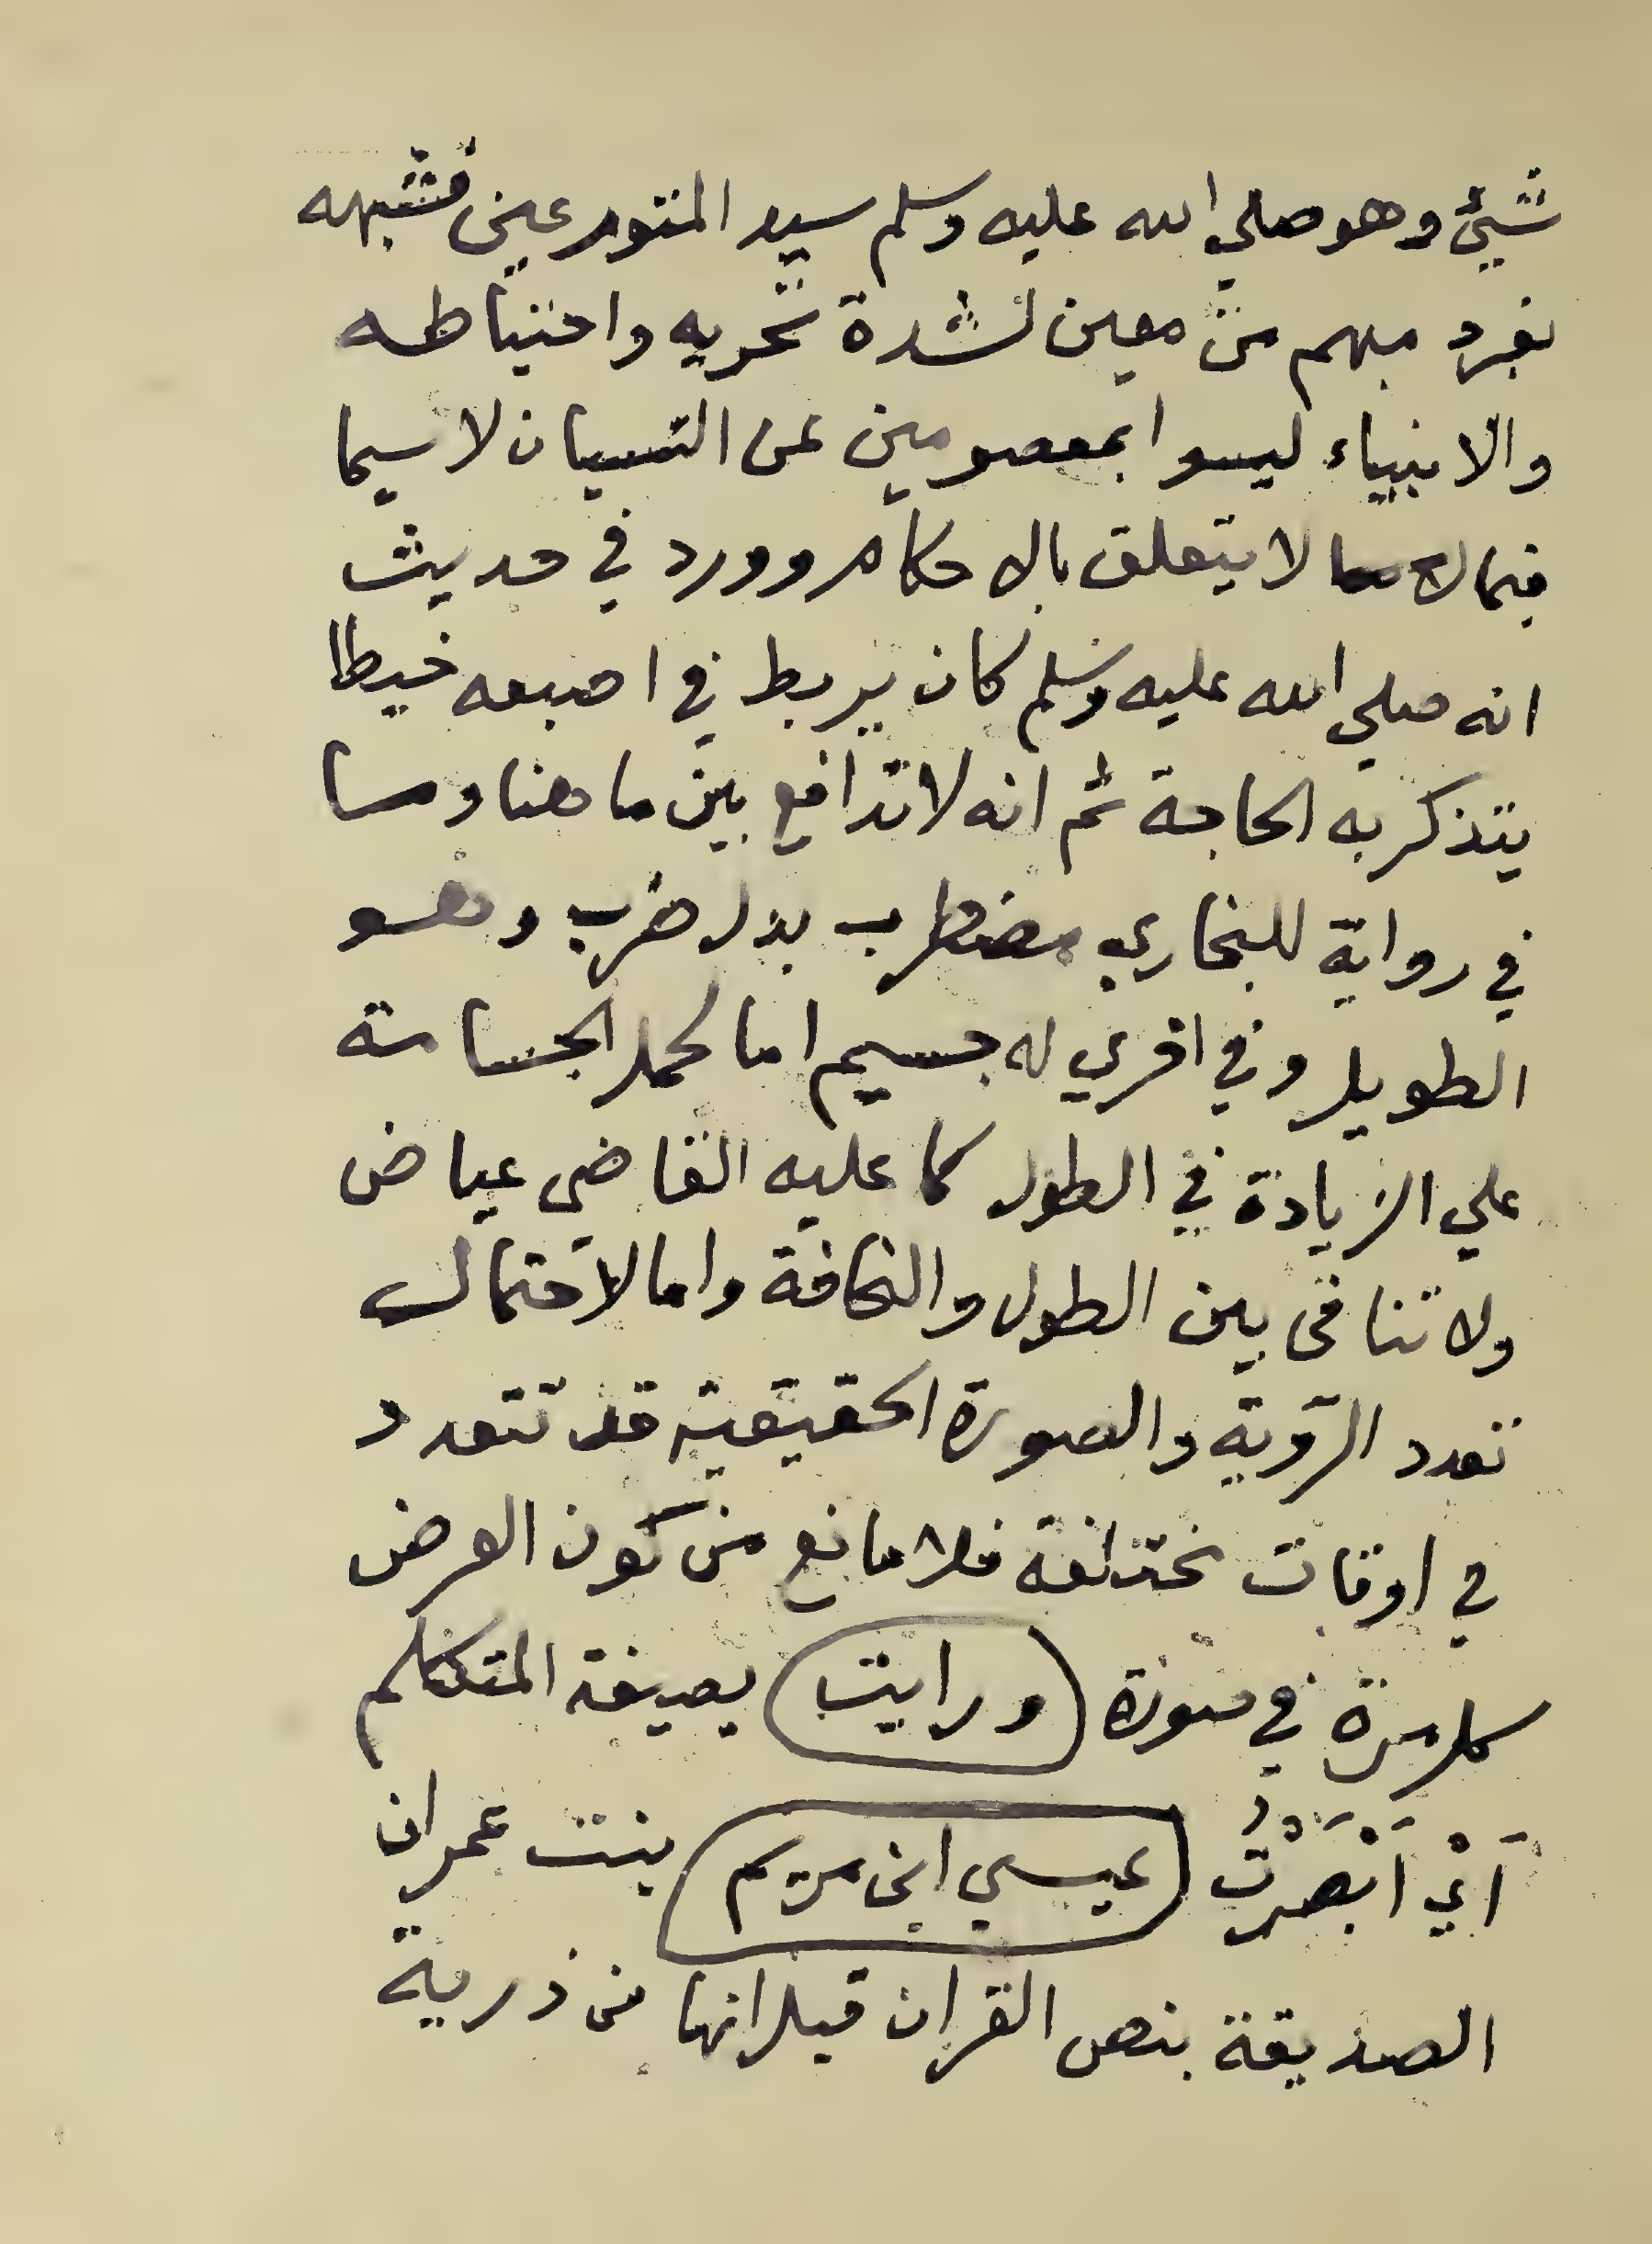 شيئ وهو صلي الله عليه وسلم سيد المتورعين فشبهه
بفرد مبهم من معين لشدة تحريه واحتياطه
والانبياء ليسوا بمعصومين عن النسيان لا سيما
فيما لا يتعلق بالاحكام وورد في حديث
انه صلي الله عليه وسلم كان يربط في اصبعه خيطا
يتذكر به الحاجة ثم انه لا تدافع بين ما هنا وما
في رواية للبخاري مضطرب بدل ضرب وهو
الطويل وفي اخري له جسيم اما لحمل الجسامة
علي الزيادة في الطول كما عليه القاضي عياض
ولا تنافي بين الطول والنحافة واما لاحتمال
تعدد الرؤية والصورة الحقيقية قد تتعدد
في اوقات مختلفة فلا مانع من كون العرض
كل مرة في صورة ورايت بصيغة المتكلم
اَيْ اَبْصَرْتُ عيسي ابن مريم بنت عمران
الصديقة بنص القران قيل انها من ذرية